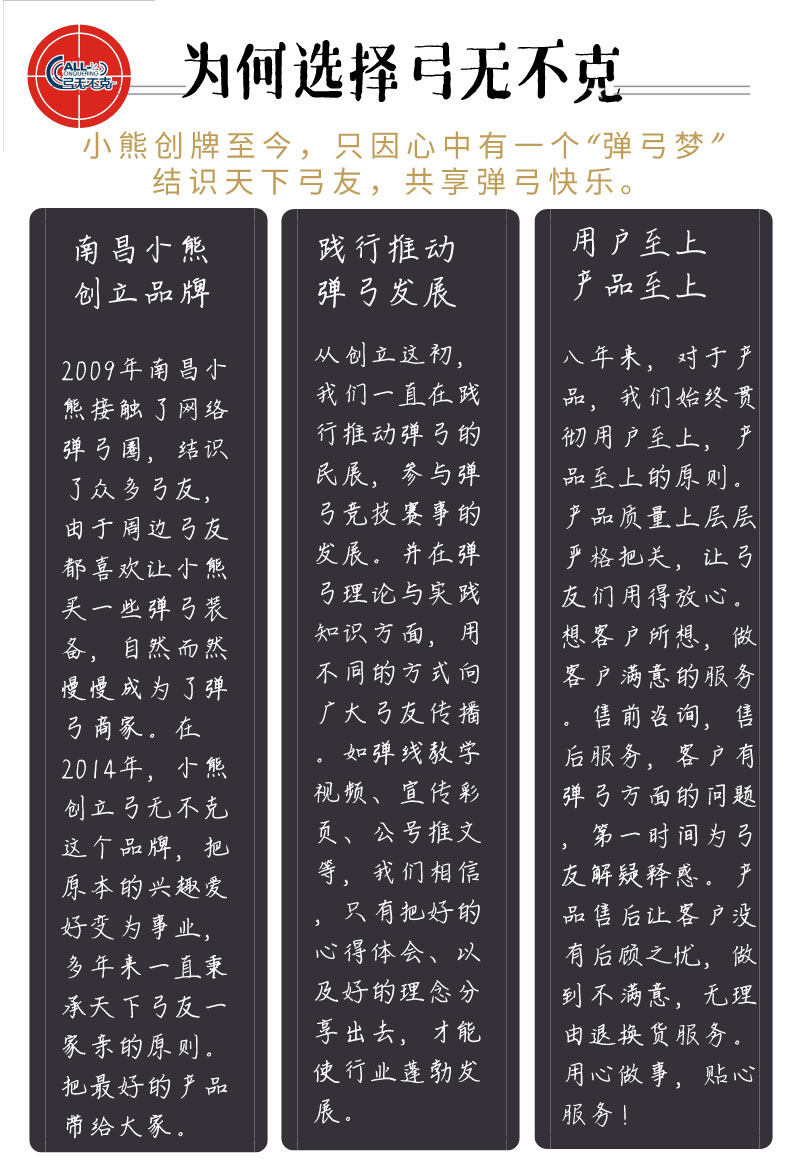 ALL
CONQUERING
弓无不克
为何选择弓无不克
小熊创牌至今，只因心中有一个“弹弓梦”
结识天下弓友，共享弹弓快乐。
南昌小熊
创立品牌
2009年南昌小
熊接触了网络
弹弓圈，结识
了众多弓友，
由于周边弓友
都喜欢让小熊
买一些弹弓装
备，自然而然
慢慢成为了弹
弓商家。在
2014年，小熊
创立弓无不克
这个品牌，把
原本的兴趣爱
好变为事业，
多年来一直秉
承天下弓友一
家亲的原则。
把最好的产品
带给大家。
践行推动
弹弓发展
从创立这初，
我们一直在践
行推动弹弓的
民展，参与弹
弓竞技赛事的
发展。并在弹
弓理论与实践
知识方面，用
不同的方式向
广大弓友传播
。如弹线教学
视频、宣传彩
页、公号推文
等，我们相信
，只有把好的
心得体会、以
及好的理念分
享出去，才能
使行业蓬勃发
展。
用户至上
产品至上
八年来，对于产
品，我们始终贯
彻用户至上，产
品至上的原则。
产品质量上层层
严格把关，让弓
友们用得放心。
想客户所想，做
客户满意的服务
。售前咨询，售
后服务，客户有
弹弓方面的问题
，第一时间为弓
友解疑释惑。产
品售后让客户没
有后顾之忧，做
到不满意，无理
由退换货服务。
用心做事，贴心
服务！